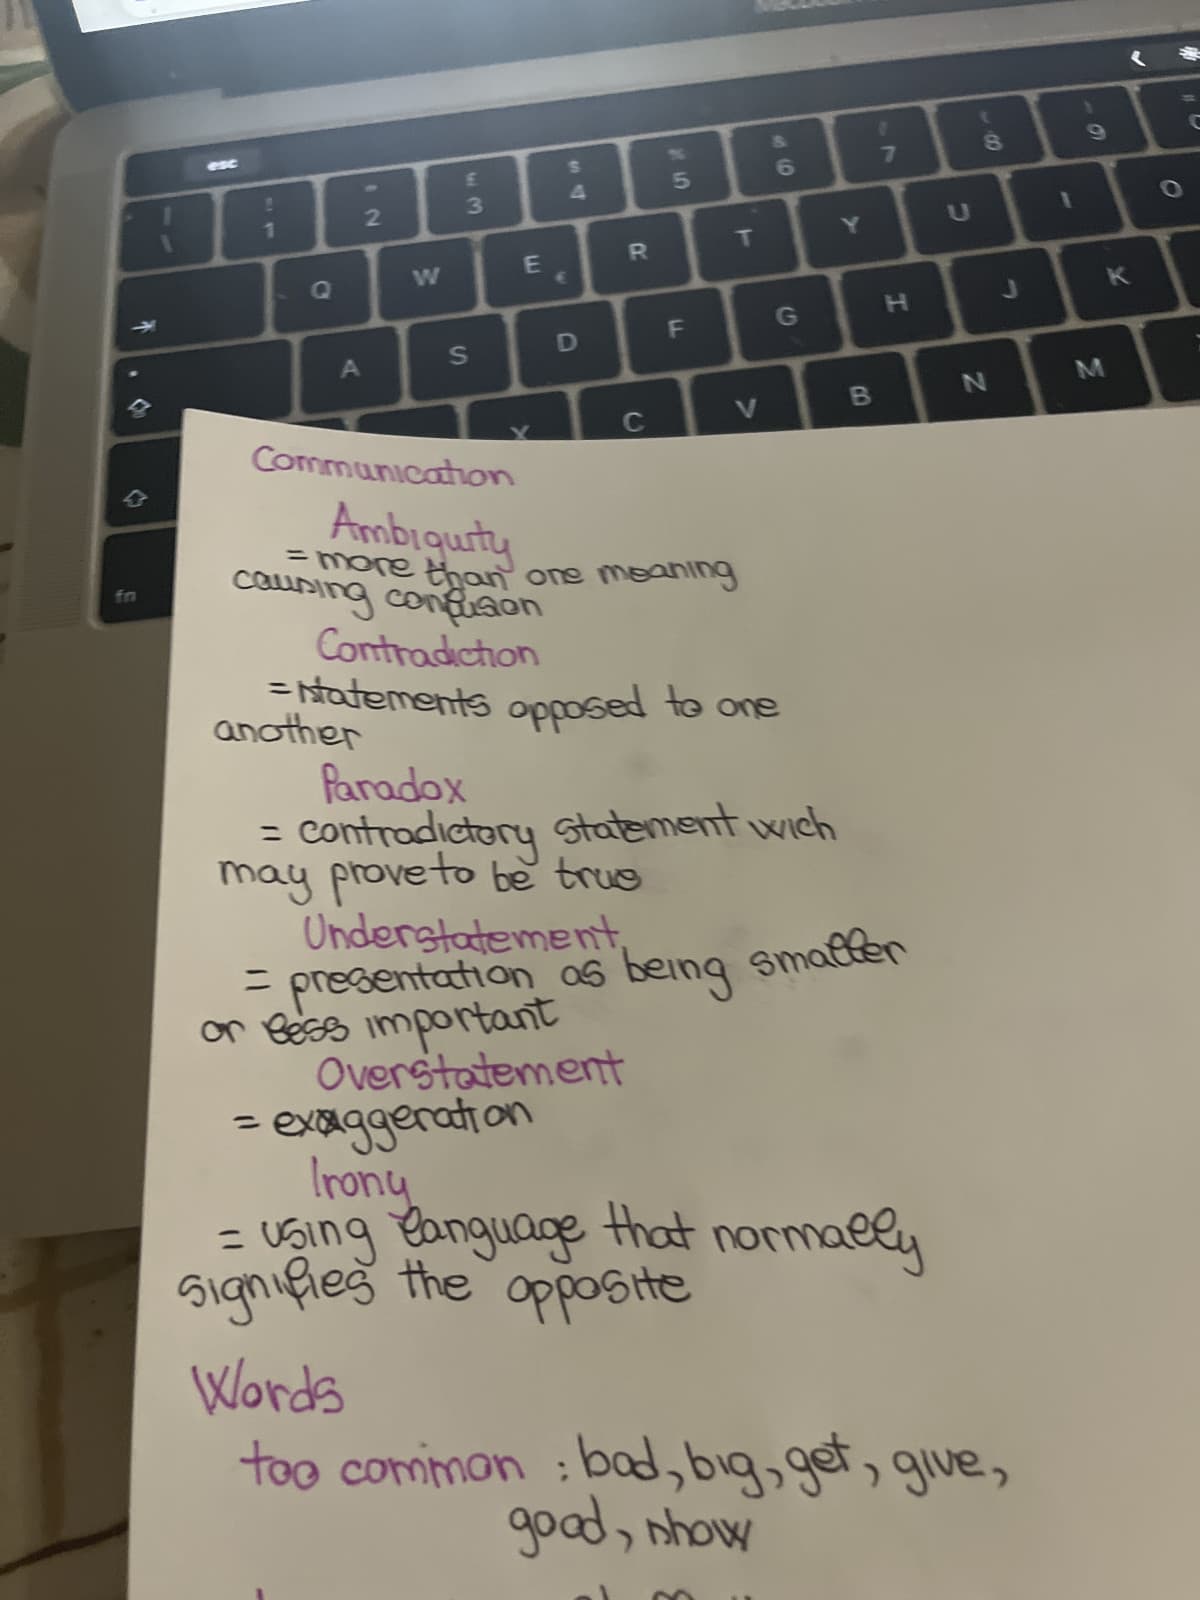 esc
! 1
" 2
£ 3
$ 4
% 5
& 6
/ 7
( 8
) 9
=
| \
Q W E € R T Y U I O
A S D F G H J K
X C V B N M
fn
Communication
Ambiguity
= more than one meaning
causing confusion
Contradiction
= statements opposed to one
another
Paradox
= contradictory statement wich
may prove to be true
Understatement
= presentation as being smaller
or less important
Overstatement
= exaggeration
Irony
= using language that normally
signifies the opposite
Words
too common : bad, big, get, give,
good, show